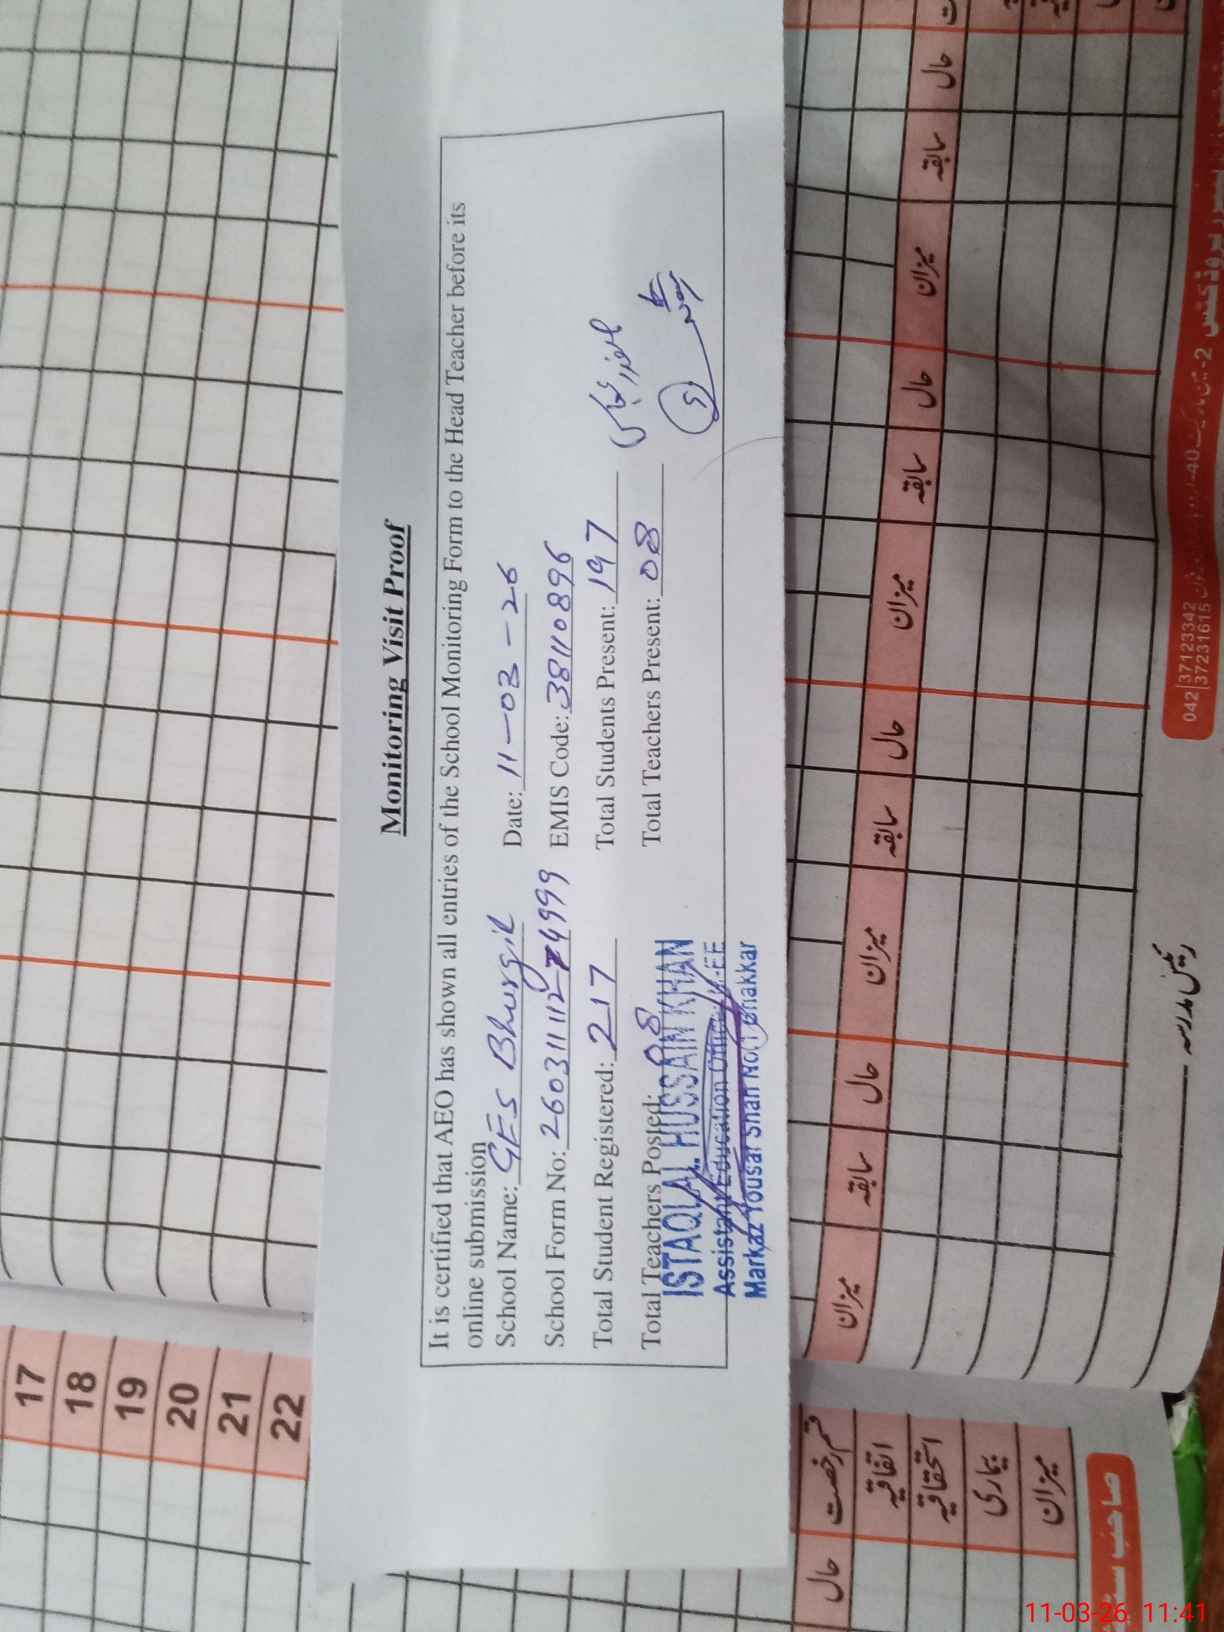 Monitoring Visit Proof
It is certified that AEO has shown all entries of the School Monitoring Form to the Head Teacher before its
online submission
School Name: GES Bhurgil Date: 11-03-26
School Form No: 260311112 7 4999 EMIS Code: 38110896
Total Student Registered: 217 Total Students Present: 197
Total Teachers Posted: 08 Total Teachers Present: 08
ISTAQLAL HUSSAIN KHAN
Assistant Education Officer M-EE
Markaz Yousaf Shah No.1 Bhakkar
17
18
19
20
21
22
میزان سابقہ حال میزان سابقہ حال میزان سابقہ حال میزان سابقہ حال
قسم رخصت حال
اتفاقیہ
استحقاقیہ
بیماری
میزان
رئیس مدرسہ
صاحب
042 37123342
37231615
11-03-26 11:41